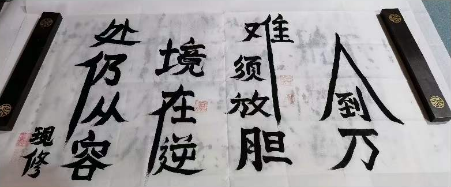 人到万
难须放胆
境在逆
处仍从容
现修